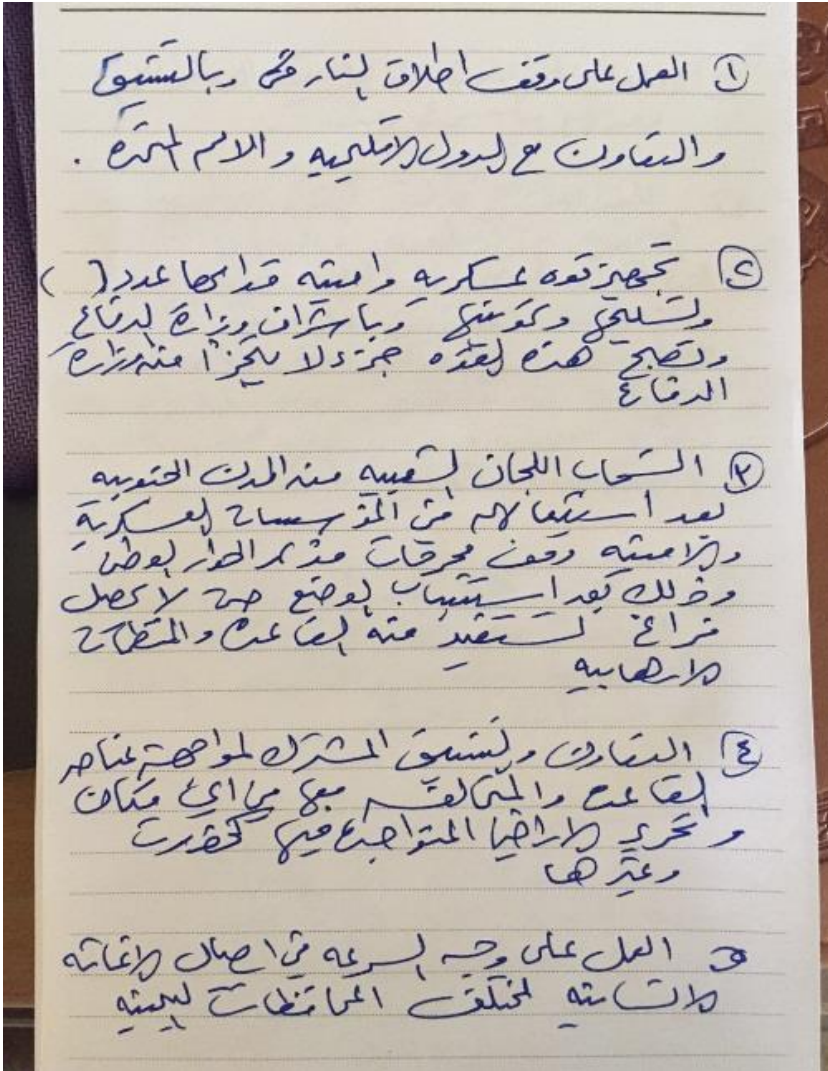 ١ العمل على وقف اطلاق النار فوراً وبالتنسيق
والتعاون مع الدول الاقليميه والامم المتحده .
٢ تجهيز قوه عسكريه وامنيه قوامها عدد ( )
وتسليحها وتموينها وباشراف وزارة الدفاع
وتصبح هذه القوه جزء لا يتجزأ من وزارة
الدفاع
٣ انسحاب اللجان الشعبيه من المدن الجنوبيه
بعد استيعابهم في المؤسسات العسكرية
والامنيه وفق مخرجات مؤتمر الحوار الوطني
وذلك بعد استتباب الوضع حتى لا يحصل
فراغ تستفيد منه القاعده والمنظمات
الارهابيه
٤ التعاون والتنسيق المشترك لمواجهة عناصر
القاعده والمتحالفه معها في اي مكان
وتحرير الاراضي المتواجده فيها كحضرموت
وغيرها
٥ العمل على وجه السرعه في ايصال الاغاثه
الانسانيه لمختلف المحافظات اليمنيه